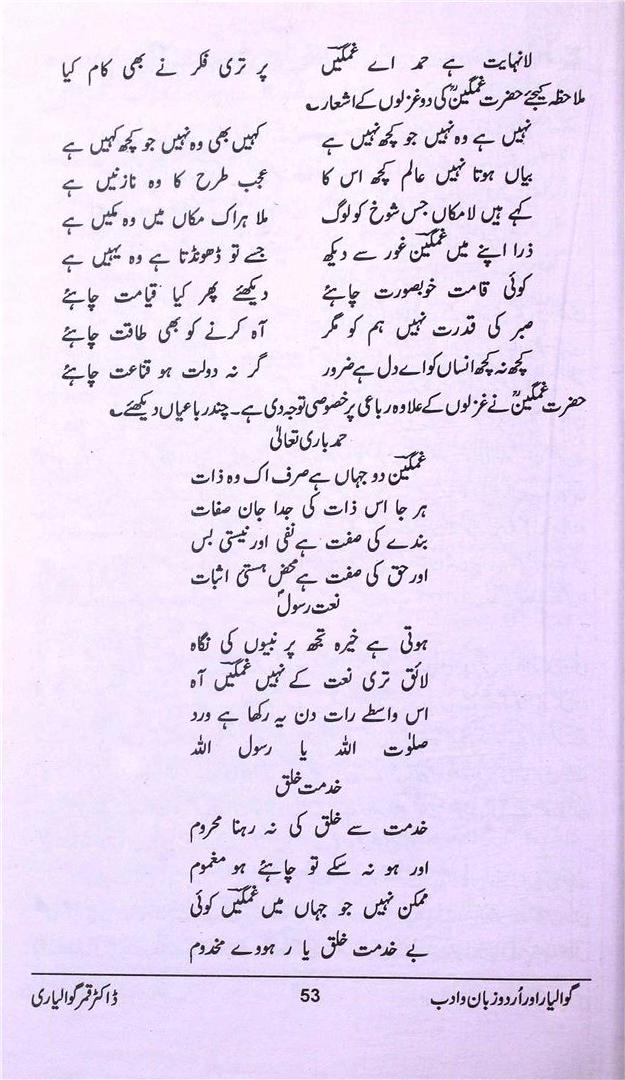 لانہایت ہے حمد اے غمگینؔ پر تری فکر نے بھی کام کیا
ملاحظہ کیجئے حضرت غمگینؒ کی دو غزلوں کے اشعار ؎
نہیں ہے وہ نہیں جو کچھ نہیں ہے کہیں بھی وہ نہیں جو کچھ کہیں ہے
بیاں ہوتا نہیں عالم کچھ اس کا عجب طرح کا وہ نازنیں ہے
کہے ہیں لامکاں جس شوخ کو لوگ ملا ہراک مکاں میں وہ مکیں ہے
ذرا اپنے میں غمگینؔ غور سے دیکھ جسے تو ڈھونڈتا ہے وہ یہیں ہے
کوئی قامت خوبصورت چاہئے دیکھئے پھر کیا قیامت چاہئے
صبر کی قدرت نہیں ہم کو مگر آہ کرنے کو بھی طاقت چاہئے
کچھ نہ کچھ انساں کو اے دل ہے ضرور گر نہ دولت ہو قناعت چاہئے
حضرت غمگینؒ نے غزلوں کے علاوہ رباعی پر خصوصی توجہ دی ہے۔ چند رباعیاں دیکھئے ؎
حمد باری تعالیٰ
غمگینؔ دو جہاں ہے صرف اک وہ ذات
ہر جا اس ذات کی جدا جان صفات
بندے کی صفت ہے نفی اور نیستی بس
اور حق کی صفت ہے محض ہستئ اثبات
نعت رسولؐ
ہوتی ہے خیرہ تجھ پر نبیوں کی نگاہ
لائق تری نعت کے نہیں غمگیںؔ آہ
اس واسطے رات دن یہ رکھا ہے ورد
صلوٰت اللہ یا رسول اللہ
خدمت خلق
خدمت سے خلق کی نہ رہنا محروم
اور ہو نہ سکے تو چاہئے ہو مغموم
ممکن نہیں جو جہاں میں غمگیںؔ کوئی
بے خدمت خلق یا ر ہووے مخدوم
گوالیار اور اُردو زبان و ادب 53 ڈاکٹر قمر گوالیاری